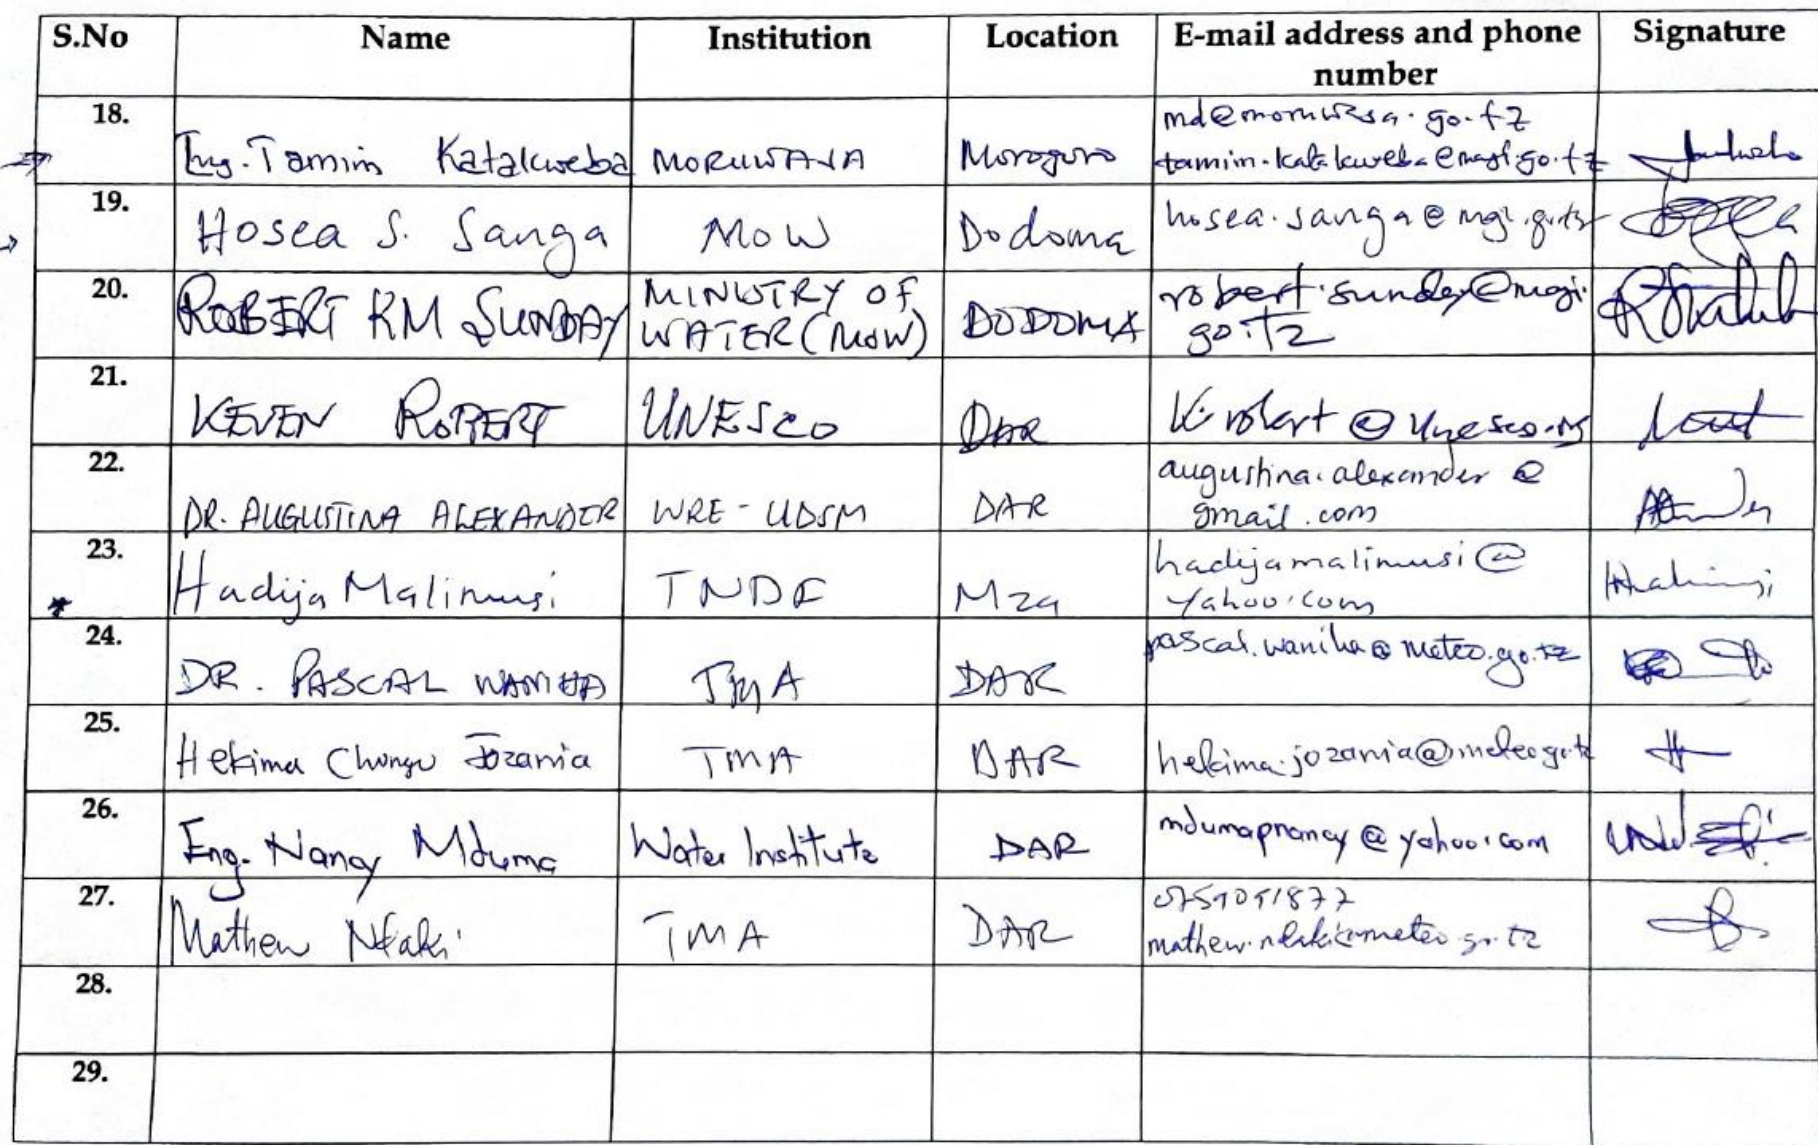 S.No Name Institution Location E-mail address and phone number Signature
18. Eng. Tamim Katakweba MORUWASA Morogoro md@moruwasa.go.tz
tamim.katakweba@maji.go.tz
19. Hosea S. Sanga MoW Dodoma hosea.sanga@maji.go.tz
20. ROBERT KM SUNDAY MINISTRY OF WATER (MOW) DODOMA robert.sunday@maji.
go.tz
21. KEVEN ROBERT UNESCO DAR k.robert@unesco.org
22. DR. AUGUSTINA ALEXANDER WRE-UDSM DAR augustina.alexander@
gmail.com
23. Hadija Malimusi TNDF Mza hadijamalimusi@
yahoo.com
24. DR. PASCAL WANIHA TMA DAR pascal.waniha@meteo.go.tz
25. Hekima Chongu Jozania TMA DAR hekima.jozania@meteo.go.tz
26. Eng. Nancy Mduma Water Institute DAR mdumapnancy@yahoo.com
27. Mathew Ndaki TMA DAR
mathew.ndaki@meteo.go.tz
28.
29.